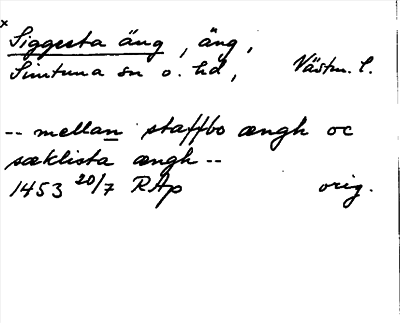 x
Siggesta äng, äng,
Simtuna sn o. hd, Västm. l.
-- mellan staffbo ængh oc
sæklista ængh --
1453 20/7 RAp orig.